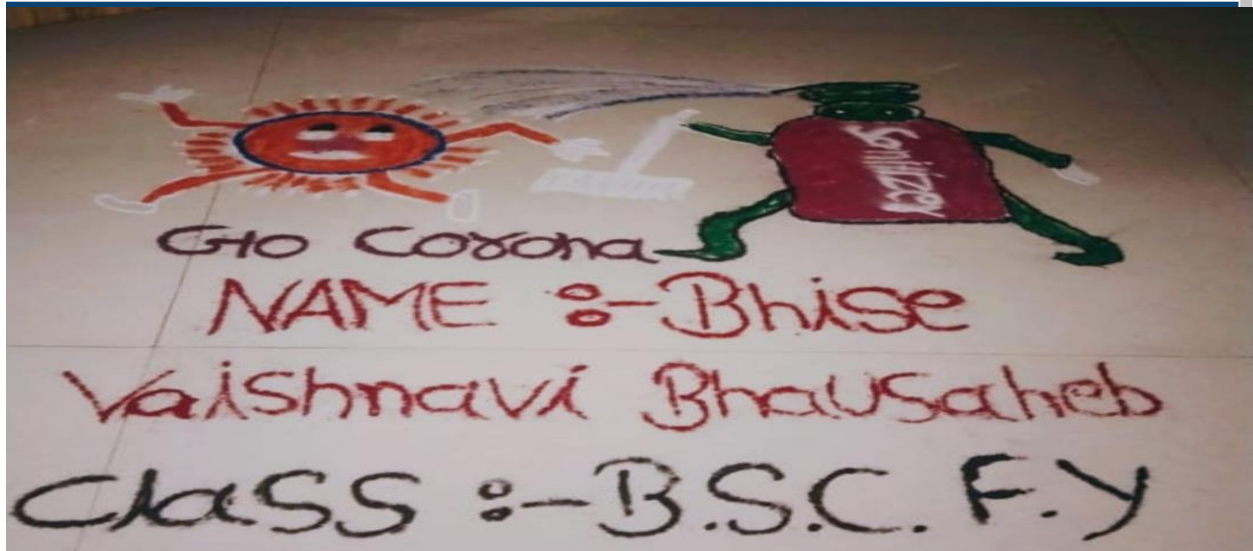 Sanitizer
Go Corona
NAME :- Bhise
Vaishnavi Bhausaheb
Class :- B.S.C. F.Y